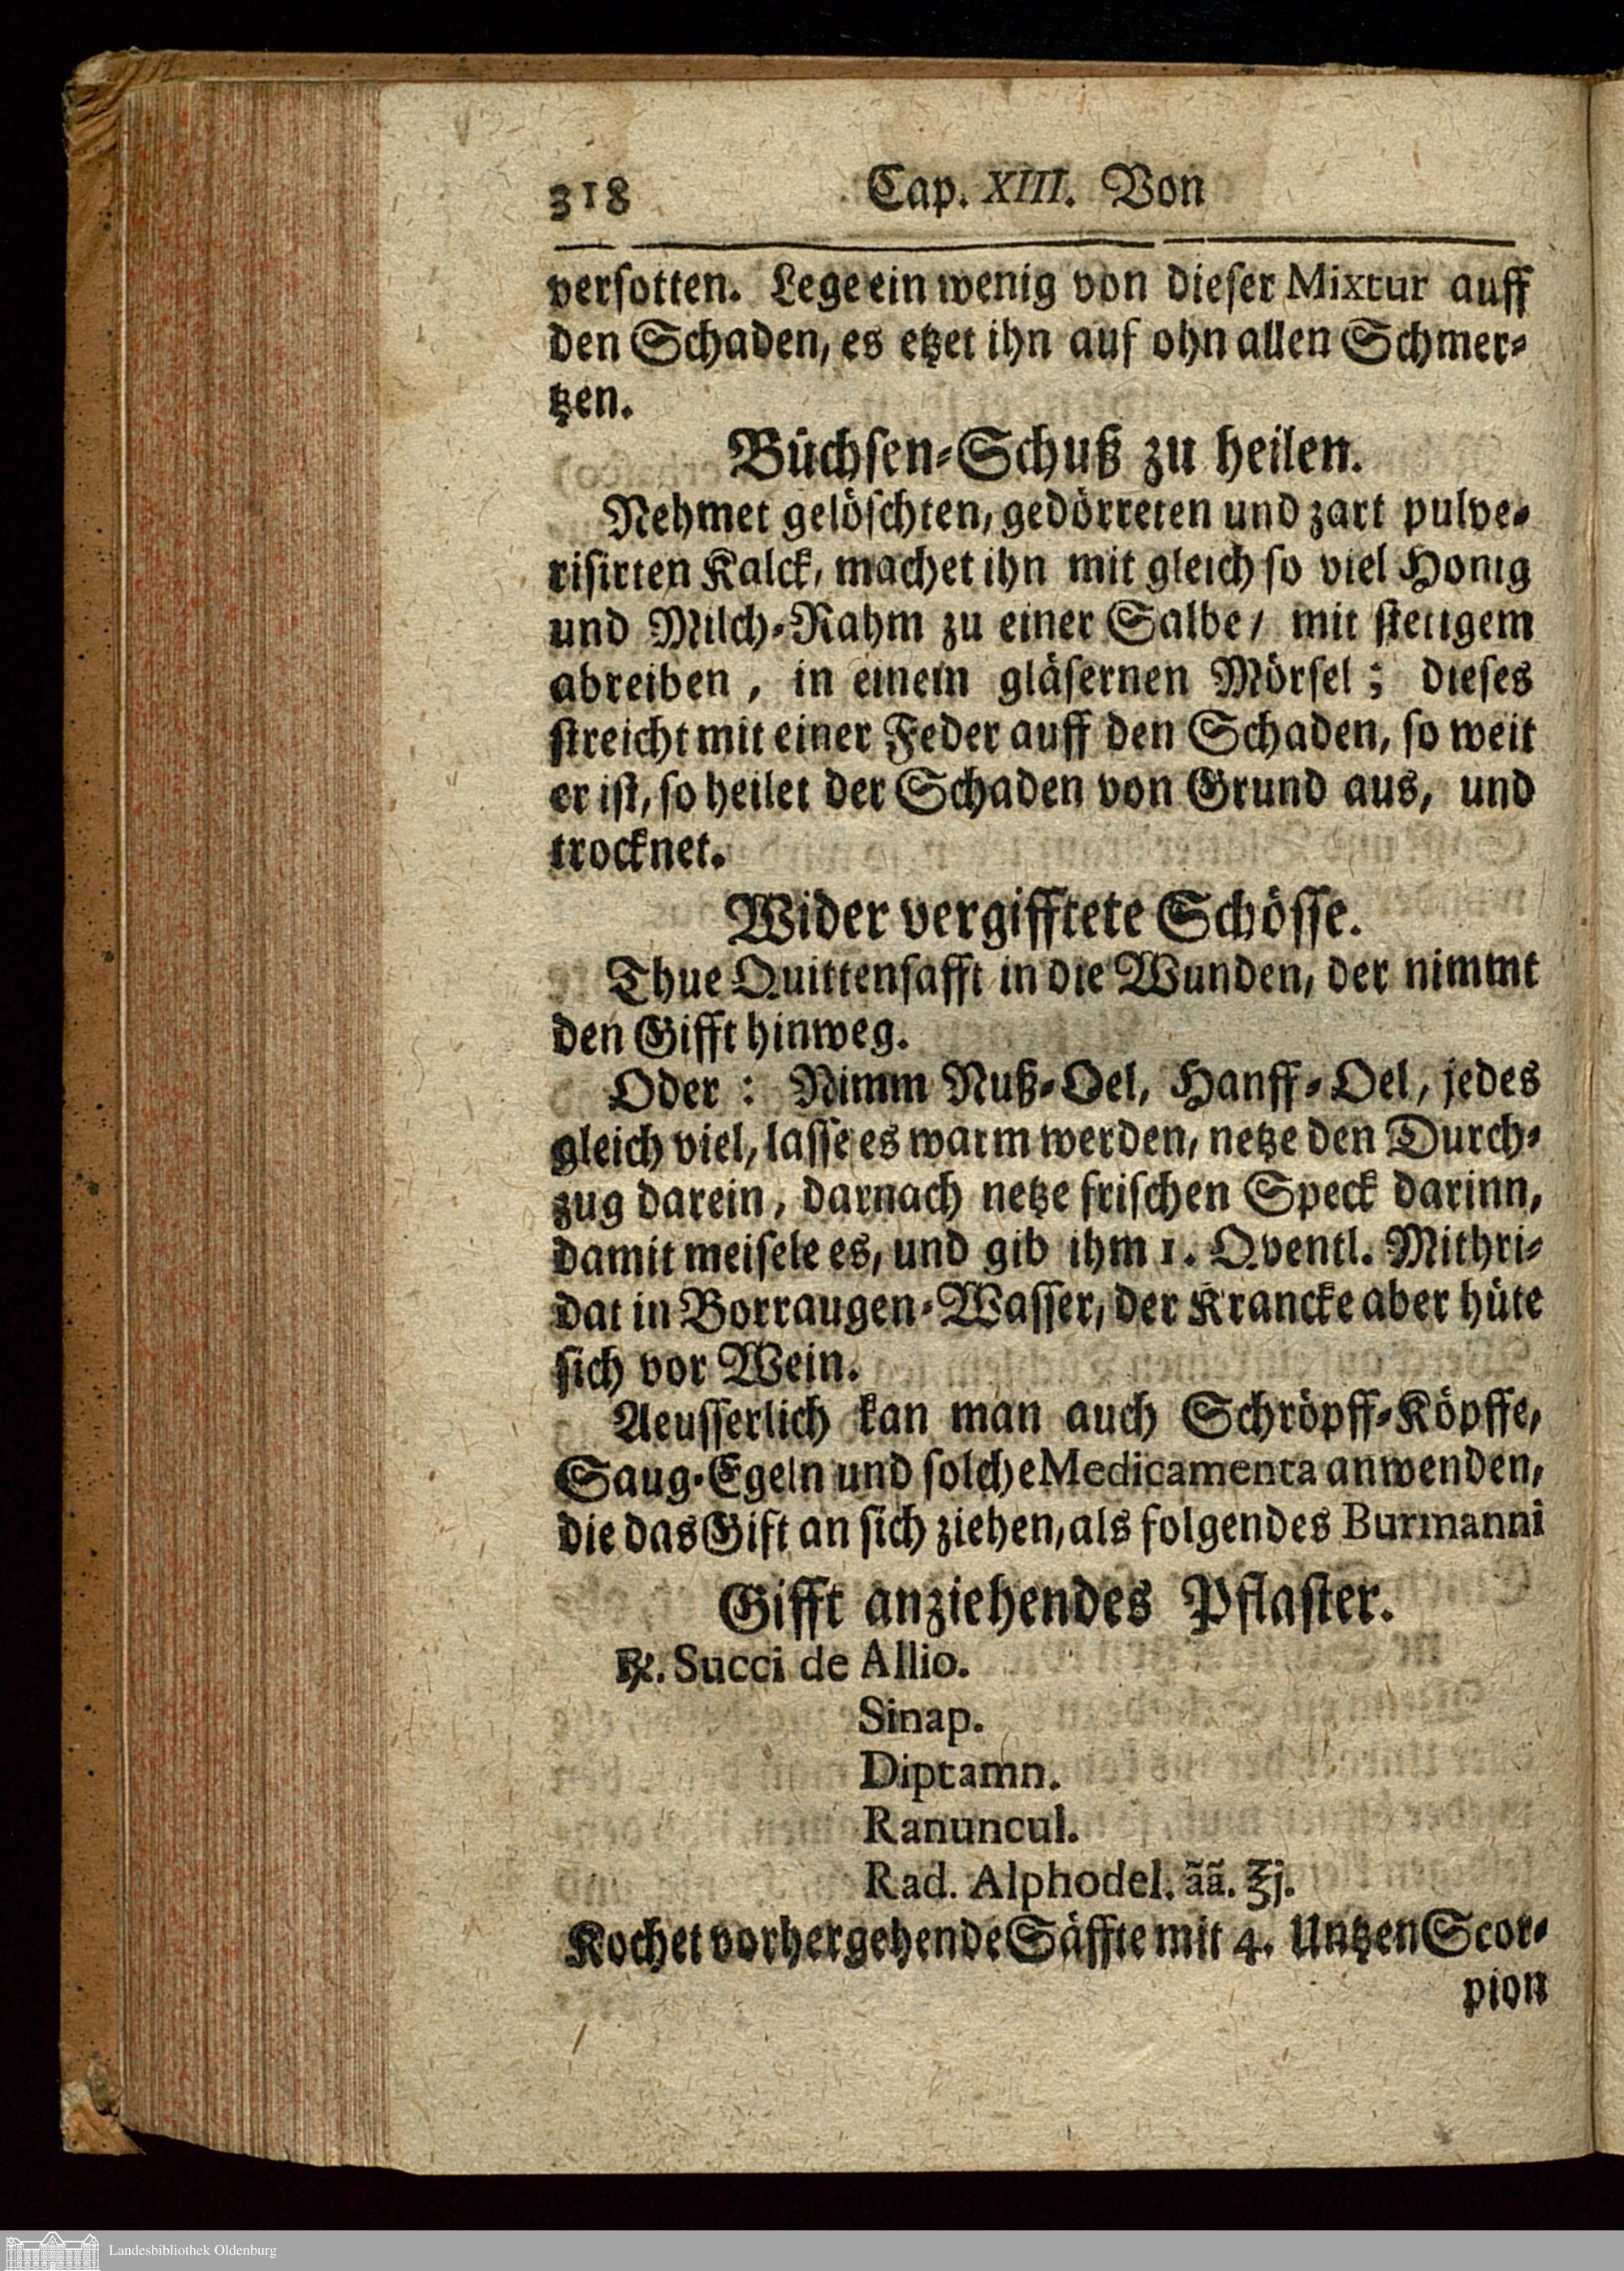 318 Cap. XIII. Von
versotten. Lege ein wenig von dieser Mixtur auff
den Schaden, es etzet ihn auf ohn allen Schmer-
tzen.
Büchsen-Schuß zu heilen.
Nehmet gelöschten, gedörreten und zart pulve-
risirten Kalck, machet ihn mit gleich so viel Honig
und Milch-Rahm zu einer Salbe / mit stetigem
abreiben, in einem gläsernen Mörsel; dieses
streicht mit einer Feder auff den Schaden, so weit
er ist, so heilet der Schaden von Grund aus, und
trocknet.
Wider vergifftete Schösse.
Thue Quittensafft in die Wunden, der nimmt
den Gifft hinweg.
Oder: Nimm Nuß-Oel, Hanff-Oel, jedes
gleich viel, lasse es warm werden, netze den Durch-
zug darein, darnach netze frischen Speck darinn,
damit meisele es, und gib ihm 1. Qventl. Mithri-
dat in Borraugen-Wasser, der Krancke aber hüte
sich vor Wein.
Aeusserlich kan man auch Schröpff-Köpffe,
Saug-Egeln und solche Medicamenta anwenden,
die das Gift an sich ziehen, als folgendes Burmanni
Gifft anziehendes Pflaster.
℞. Succi de Allio.
Sinap.
Diptamn.
Ranuncul.
Rad. Alphodel. ãã. ℥j.
Kochet vorhergehende Säffte mit 4. Untzen Scor-
pion
Landesbibliothek Oldenburg